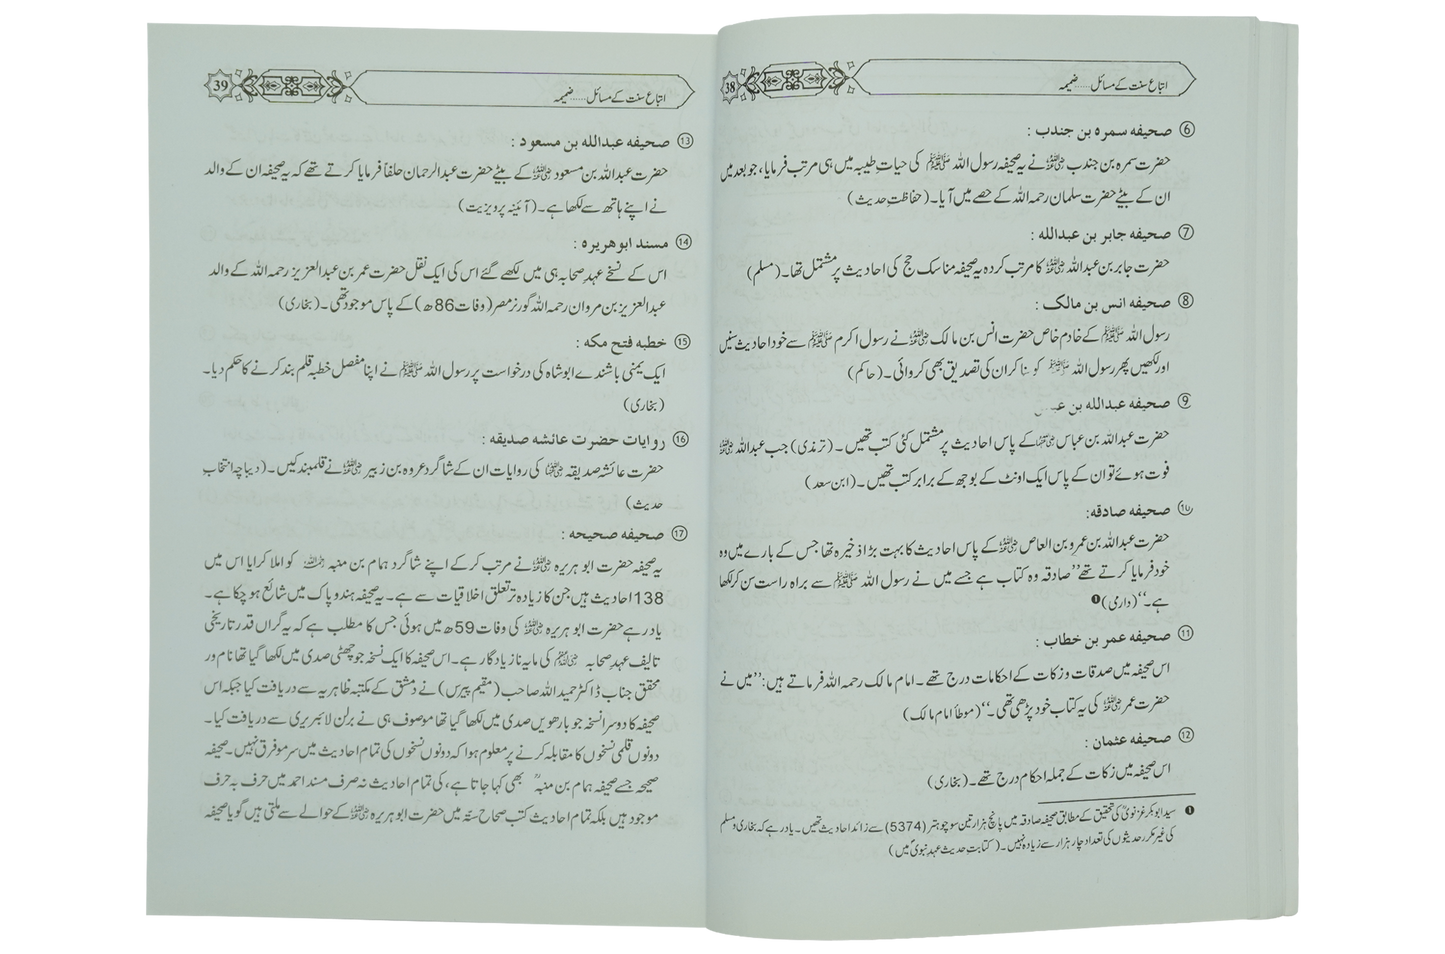 اتباع سنت کے مسائل......ضمیمہ
38
⑥ صحیفه سمره بن جندب :
حضرت سمرہ بن جندب رضی اللہ عنہ نے یہ صحیفہ رسول اللہ ﷺ کی حیاتِ طیبہ میں ہی مرتب فرمایا، جو بعد میں
ان کے بیٹے حضرت سلمان رحمہ اللہ کے حصے میں آیا۔ (حفاظتِ حدیث)
⑦ صحیفه جابر بن عبدالله :
حضرت جابر بن عبداللہ رضی اللہ عنہ کا مرتب کردہ یہ صحیفہ مناسک حج کی احادیث پر مشتمل تھا۔ (مسلم)
⑧ صحیفه انس بن مالک :
رسول اللہ ﷺ کے خادم خاص حضرت انس بن مالک رضی اللہ عنہ نے رسول اکرم ﷺ سے خود احادیث سنیں
اور لکھیں پھر رسول اللہ ﷺ کو سنا کر ان کی تصدیق بھی کروائی۔ (حاکم)
⑨ صحیفه عبدالله بن
حضرت عبداللہ بن عباس رضی اللہ عنہما کے پاس احادیث پر مشتمل کئی کتب تھیں۔ (ترمذی) جب عبداللہ رضی اللہ عنہ
فوت ہوئے تو ان کے پاس ایک اونٹ کے بوجھ کے برابر کتب تھیں۔ (ابن سعد)
⑩ صحیفه صادقه:
حضرت عبداللہ بن عمرو بن العاص رضی اللہ عنہ کے پاس احادیث کا بہت بڑا ذخیرہ تھا جس کے بارے میں وہ
خود فرمایا کرتے تھے ’’صادقہ وہ کتاب ہے جسے میں نے رسول اللہ ﷺ سے براہ راست سن کر لکھا
ہے۔‘‘ (دارمی) ❶
⑪ صحیفه عمر بن خطاب :
اس صحیفہ میں صدقات و زکات کے احکامات درج تھے۔ امام مالک رحمہ اللہ فرماتے ہیں: ’’میں نے
حضرت عمر رضی اللہ عنہ کی یہ کتاب خود پڑھی تھی۔‘‘ (موطا امام مالک)
⑫ صحیفه عثمان :
اس صحیفہ میں زکات کے جملہ احکام درج تھے۔ (بخاری)
❶ سید ابوبکر غزنویؒ کی تحقیق کے مطابق صحیفہ صادقہ میں پانچ ہزار تین سو چوہتر (5374) سے زائد احادیث تھیں۔ یاد رہے کہ بخاری و مسلم
کی غیر مکرر حدیثوں کی تعداد چار ہزار سے زیادہ نہیں۔ (کتابتِ حدیث عہد نبویؐ میں)
اتباع سنت کے مسائل......ضمیمہ
39
⑬ صحیفه عبدالله بن مسعود :
حضرت عبداللہ بن مسعود رضی اللہ عنہ کے بیٹے حضرت عبدالرحمان حلفاً فرمایا کرتے تھے کہ یہ صحیفہ ان کے والد
نے اپنے ہاتھ سے لکھا ہے۔ (آئینہ پرویزیت)
⑭ مسند ابوهریره :
اس کے نسخے عہد صحابہ ہی میں لکھے گئے اس کی ایک نقل حضرت عمر بن عبدالعزیز رحمہ اللہ کے والد
عبدالعزیز بن مروان رحمہ اللہ گورنر مصر (وفات 86ھ) کے پاس موجود تھی۔ (بخاری)
⑮ خطبه فتح مکه :
ایک یمنی باشندے ابوشاہ کی درخواست پر رسول اللہ ﷺ نے اپنا مفصل خطبہ قلم بند کرنے کا حکم دیا۔
(بخاری)
⑯ روایات حضرت عائشه صدیقه :
حضرت عائشہ صدیقہ رضی اللہ عنہا کی روایات ان کے شاگرد عروہ بن زبیر رضی اللہ عنہ نے قلمبند کیں۔ (دیباچہ انتخاب
حدیث)
⑰ صحیفه صحیحه :
یہ صحیفہ حضرت ابوہریرہ رضی اللہ عنہ نے مرتب کر کے اپنے شاگرد ہمام بن منبہ رحمہ اللہ کو املا کرایا اس میں
138 احادیث ہیں جن کا زیادہ تر تعلق اخلاقیات سے ہے۔ یہ صحیفہ ہندو پاک میں شائع ہو چکا ہے۔
یاد رہے حضرت ابوہریرہ رضی اللہ عنہ کی وفات 59ھ میں ہوئی جس کا مطلب ہے کہ یہ گراں قدر تاریخی
تالیف عہد صحابہ کی مایہ ناز یادگار ہے۔ اس صحیفہ کا ایک نسخہ جو چھٹی صدی میں لکھا گیا تھا نام ور
محقق جناب ڈاکٹر حمید اللہ صاحب (مقیم پیرس) نے دمشق کے مکتبہ ظاہریہ سے دریافت کیا جبکہ اس
صحیفہ کا دوسرا نسخہ جو بارھویں صدی میں لکھا گیا تھا موصوف ہی نے برلن لائبریری سے دریافت کیا۔
دونوں قلمی نسخوں کا مقابلہ کرنے پر معلوم ہوا کہ دونوں نسخوں کی تمام احادیث میں سرمو فرق نہیں۔ صحیفہ
صحیحہ جسے صحیفہ ہمام بن منبہؒ بھی کہا جاتا ہے، کی تمام احادیث نہ صرف مسند احمد میں حرف بہ حرف
موجود ہیں بلکہ تمام احادیث کتب صحاح ستہ میں حضرت ابوہریرہ رضی اللہ عنہ کے حوالے سے ملتی ہیں گویا صحیفہ